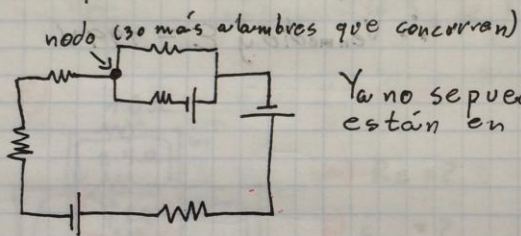 nodo (3 o más alambres que concurren)
Ya no se pue
están en